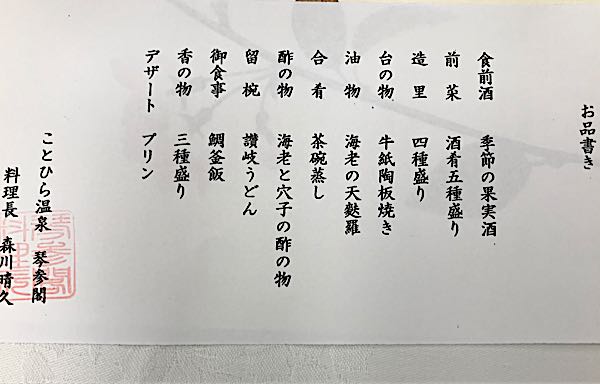 お品書き
食前酒 季節の果実酒
前菜 酒肴五種盛り
造里 四種盛り
台の物 牛紙陶板焼き
油物 海老の天麩羅
合肴 茶碗蒸し
酢の物 海老と穴子の酢の物
留椀 讃岐うどん
御食事 鯛釜飯
香の物 三種盛り
デザート プリン
ことひら温泉 琴参閣
料理長 森川晴久